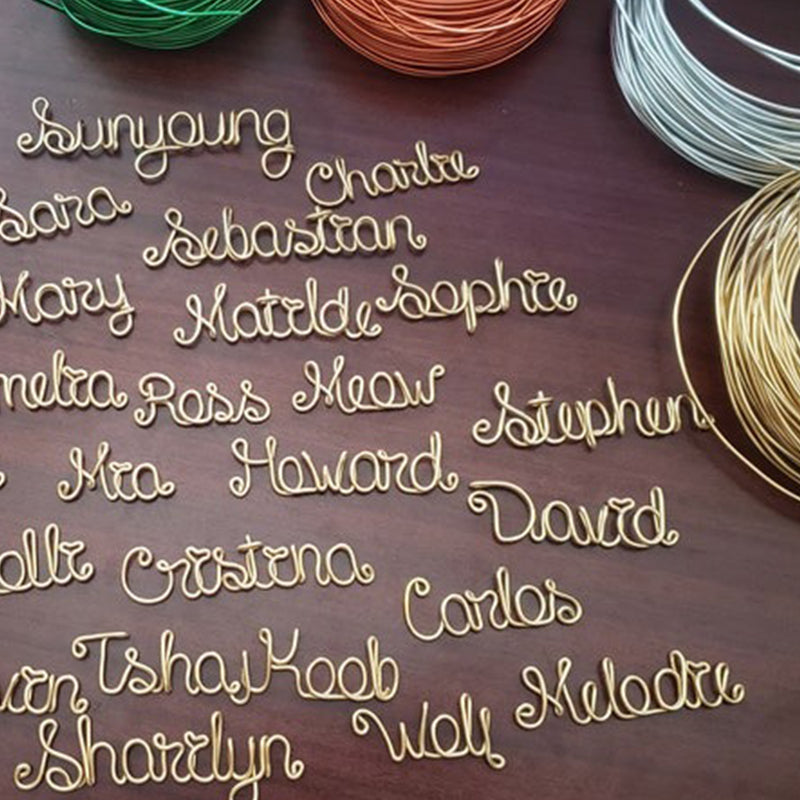 Sunyoung
Charlie
Sara
Sebastian
Mary
Matilde
Sophie
melia
Ross
Meow
Stephen
Mia
Howard
David
olli
Cristina
Carlos
Tsha
Koob
Melodie
Sharilyn
Wolf